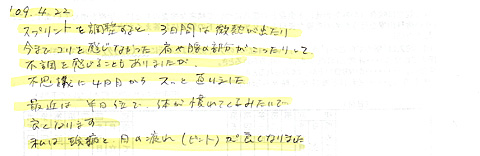 '09.4.22
スプリントを調整すると、3日間は微熱が出たり
今までコリを感じなかった肩や腕の部分がこったりして
不調を感じることもありましたが、
不思議に4日目からスッと直りました
最近は半日位で、体が慣れてくるみたいで
良くなります
私は頭痛と目の疲れ(ピント)が良くなりました